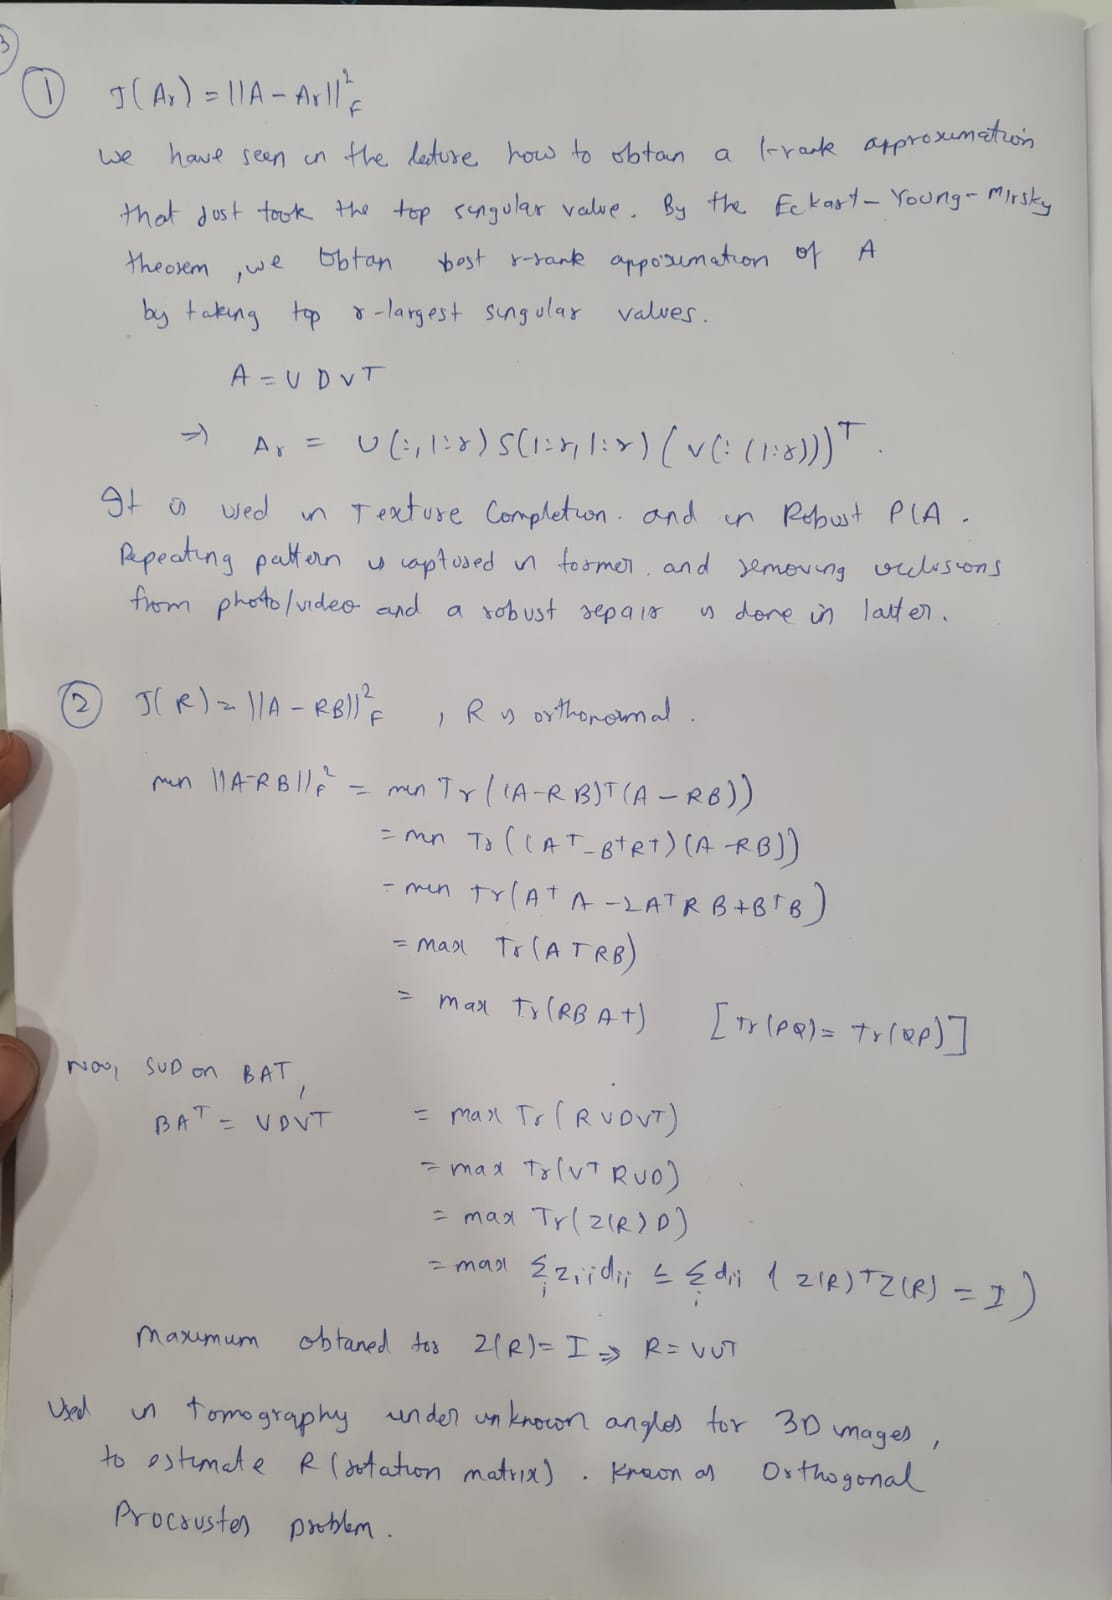 3
1 J(Ar) = ||A - Ar||²_F
we have seen in the lecture how to obtan a 1-rank approximation
that just took the top singular value. By the Eckart-Young-Mirsky
theorem, we obtan best r-rank approximation of A
by taking top r-largest singular values.
A = U D V^T
⇒ Ar = U(:,1:r) S(1:r,1:r) (V(:(1:r)))^T.
It is used in Texture Completion. and in Robust PCA.
Repeating pattern is captured in former. and removing occlusions
from photo/video and a robust repair is done in latter.
2 J(R) = ||A - RB||²_F , R is orthonormal.
min ||A-RB||_F² = min Tr((A-RB)^T(A-RB))
= min Tr((A^T-B^TR^T)(A-RB))
= min Tr(A^TA-2A^TRB+B^TB)
= max Tr(A^TRB)
= max Tr(RBA^T) [Tr(PQ) = Tr(QP)]
Now, SVD on BA^T,
BA^T = UDV^T = max Tr(RUDV^T)
= max Tr(V^TRUD)
= max Tr(Z(R)D)
= max Σ_i z_ii d_ii ≤ Σ_i d_ii (Z(R)^TZ(R) = I)
Maximum obtaned for Z(R) = I ⇒ R = VU^T
Used in tomography under unknown angles for 3D images,
to estimate R (rotation matrix). Known as Orthogonal
Procrustes problem.